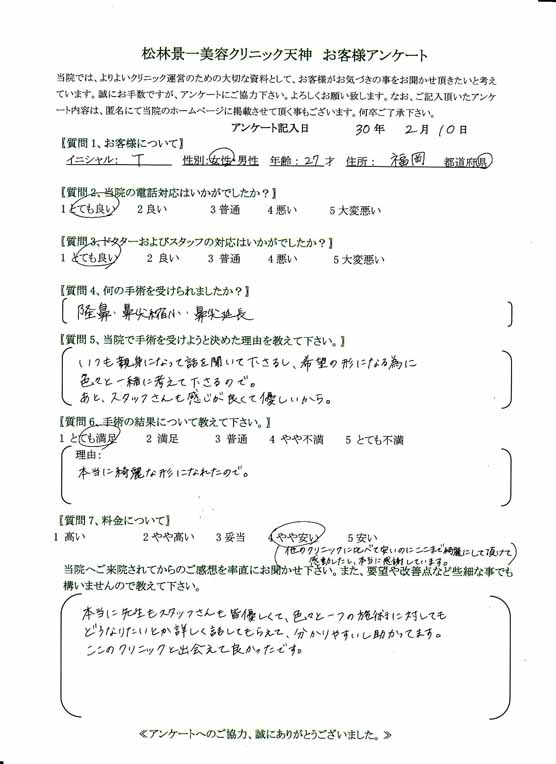 松林景一美容クリニック天神　お客様アンケート
当院では、よりよいクリニック運営のための大切な資料として、お客様がお気づきの事をお聞かせ頂きたいと考え
ています。誠にお手数ですが、アンケートにご協力下さい。よろしくお願い致します。なお、ご記入頂いたアンケ
ート内容は、匿名にて当院のホームページに掲載させて頂く事もございます。何卒ご了承下さい。
アンケート記入日　30年　2月　10日
【質問1、お客様について】
イニシャル：　T　性別：女性・男性　年齢：27才　住所：　福岡　都道府県
【質問2、当院の電話対応はいかがでしたか？】
1 とても良い　2 良い　3 普通　4 悪い　5 大変悪い
【質問3、ドクターおよびスタッフの対応はいかがでしたか？】
1 とても良い　2 良い　3 普通　4 悪い　5 大変悪い
【質問4、何の手術を受けられましたか？】
隆鼻・鼻尖縮小・鼻尖延長
【質問5、当院で手術を受けようと決めた理由を教えて下さい。】
いつも親身になって話を聞いて下さるし、希望の形になる為に
色々と一緒に考えて下さるので。
あと、スタッフさんも感じが良くて優しいから。
【質問6、手術の結果について教えて下さい。】
1 とても満足　2 満足　3 普通　4 やや不満　5 とても不満
理由:
本当に綺麗な形になれたので。
【質問7、料金について】
1 高い　2 やや高い　3 妥当　4 やや安い　5 安い
(他のクリニックに比べて安いのにここまで綺麗にして頂けて
感動したし、本当に感謝しています。)
当院へご来院されてからのご感想を率直にお聞かせ下さい。また、要望や改善点など些細な事でも
構いませんので教えて下さい。
本当に先生もスタッフさんも皆優しくて、色々と一つの施術に対しても
どうなりたいとか詳しく話してもらえて、分かりやすいし助かってます。
ここのクリニックと出会えて良かったです。
≪アンケートへのご協力、誠にありがとうございました。≫